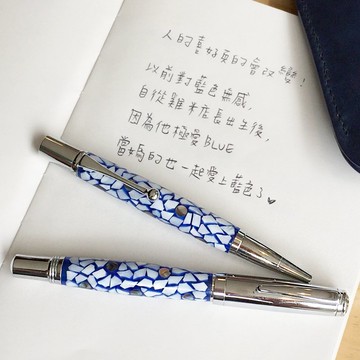 人的喜好真的會改變!
以前對藍色無感,
自從雞米店長出生後,
因為他極愛BLUE
當媽的也一起愛上藍色了♥